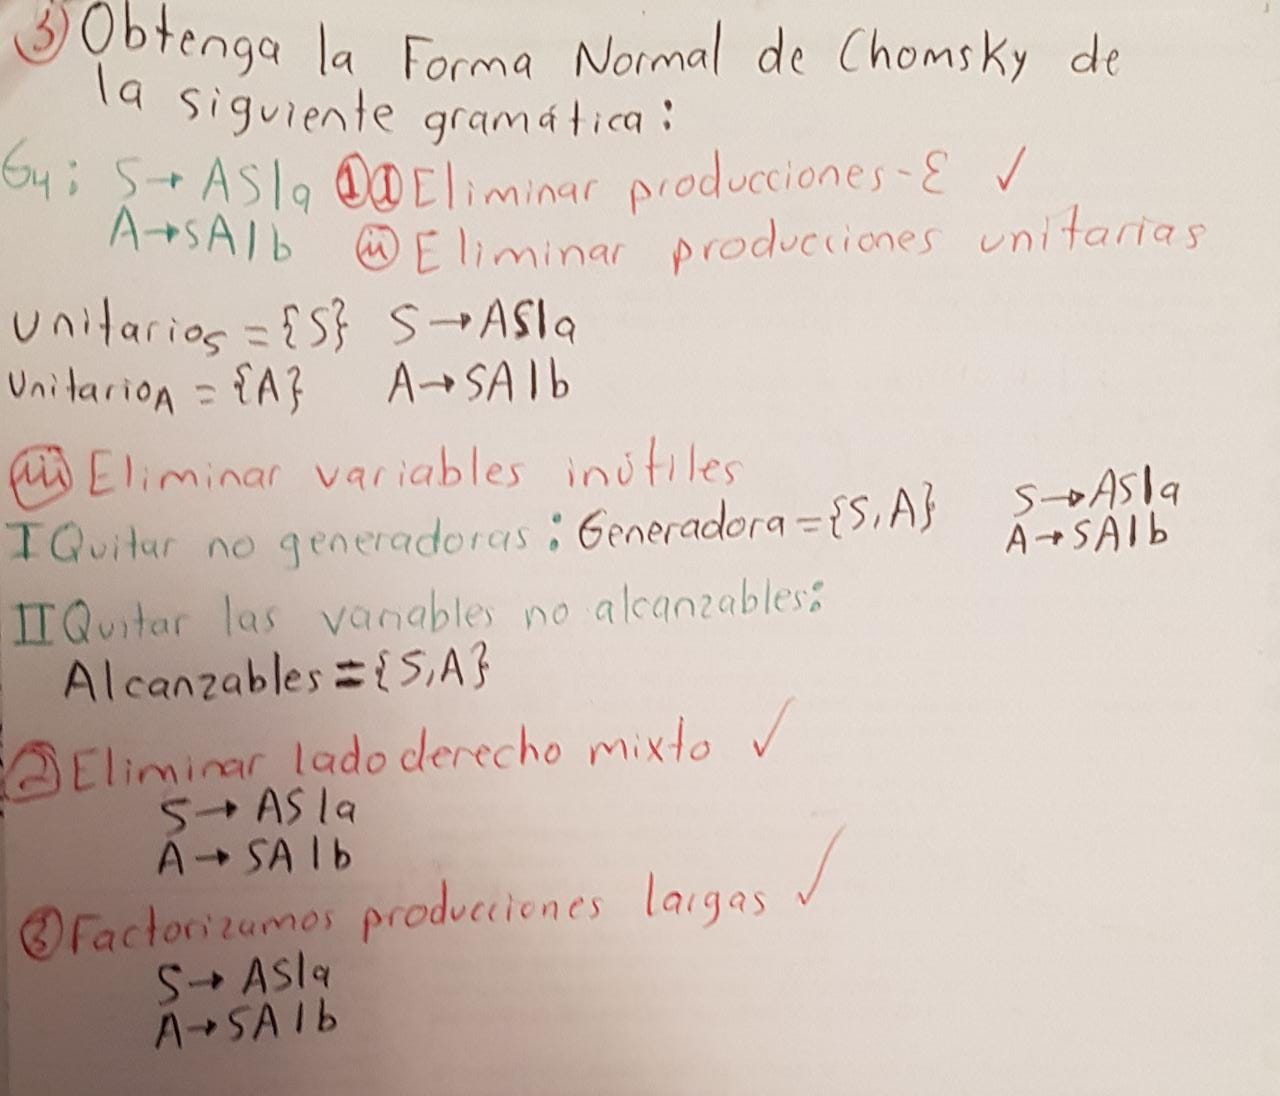 ③ Obtenga la Forma Normal de Chomsky de
la siguiente gramática:
G4: S→AS|a ① ⓘ Eliminar producciones-ε ✓
A→SA|b ⓘⓘ Eliminar producciones unitarias
UnitarioS = {S} S→AS|a
UnitarioA = {A} A→SA|b
ⓘⓘⓘ Eliminar variables inútiles
I Quitar no generadoras: Generadora={S,A} S→AS|a
A→SA|b
II Quitar las variables no alcanzables:
Alcanzables={S,A}
② Eliminar lado derecho mixto ✓
S→AS|a
A→SA|b
③ Factorizamos producciones largas ✓
S→AS|a
A→SA|b